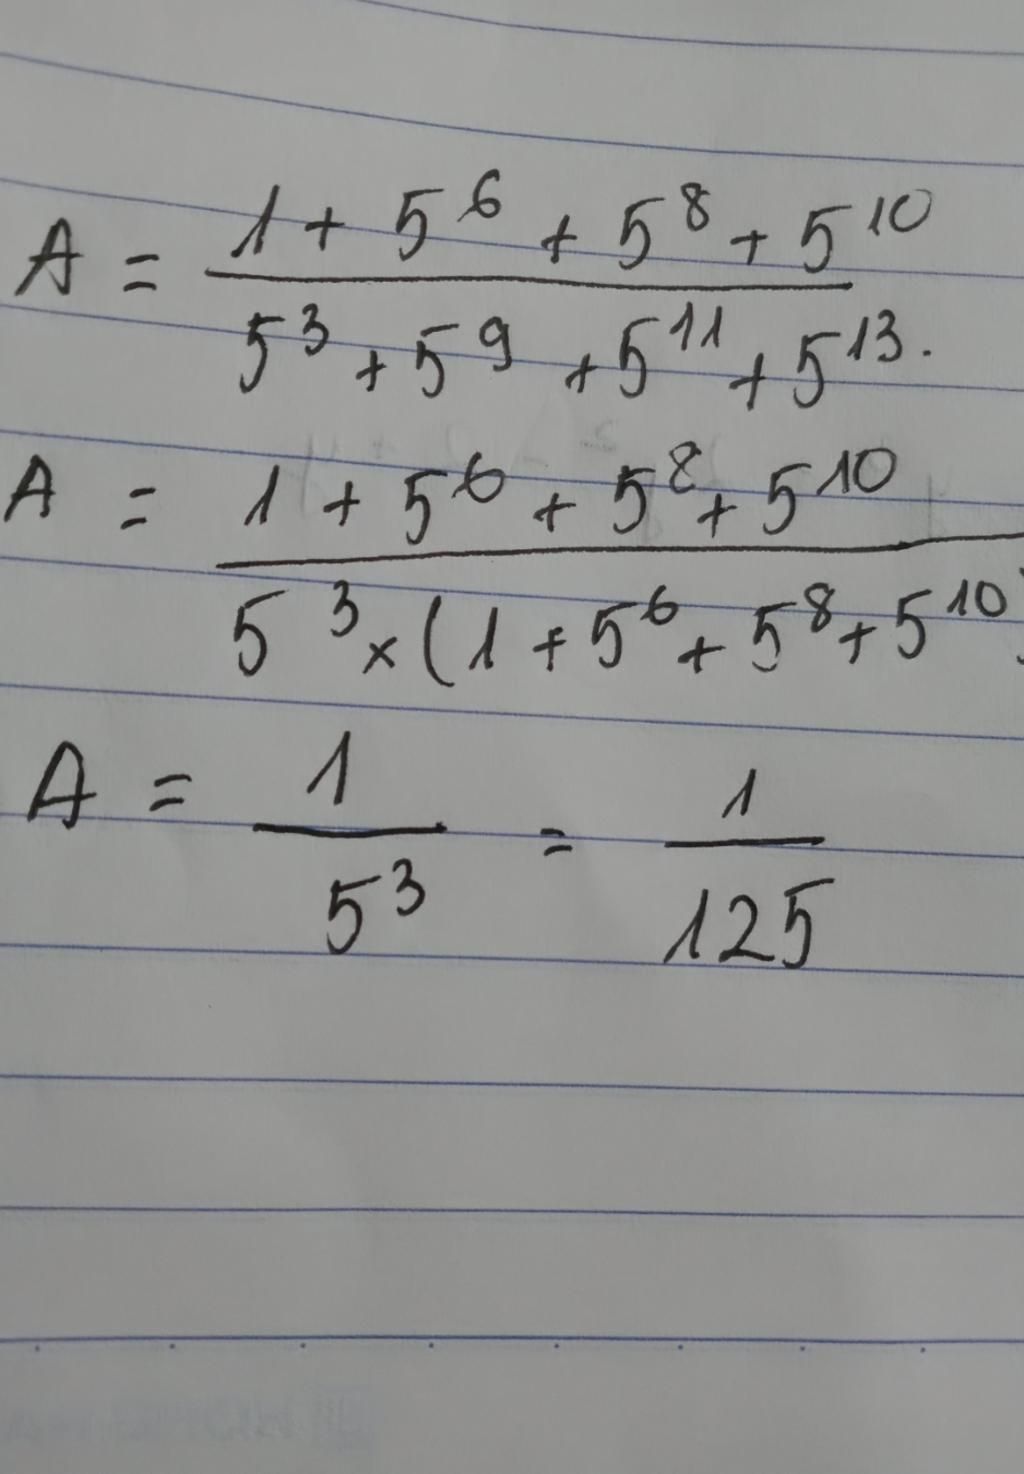 A = (1 + 5^6 + 5^8 + 5^10) / (5^3 + 5^9 + 5^11 + 5^13.)
A = (1 + 5^6 + 5^8 + 5^10) / (5^3 × (1 + 5^6 + 5^8 + 5^10))
A = 1 / 5^3 = 1 / 125